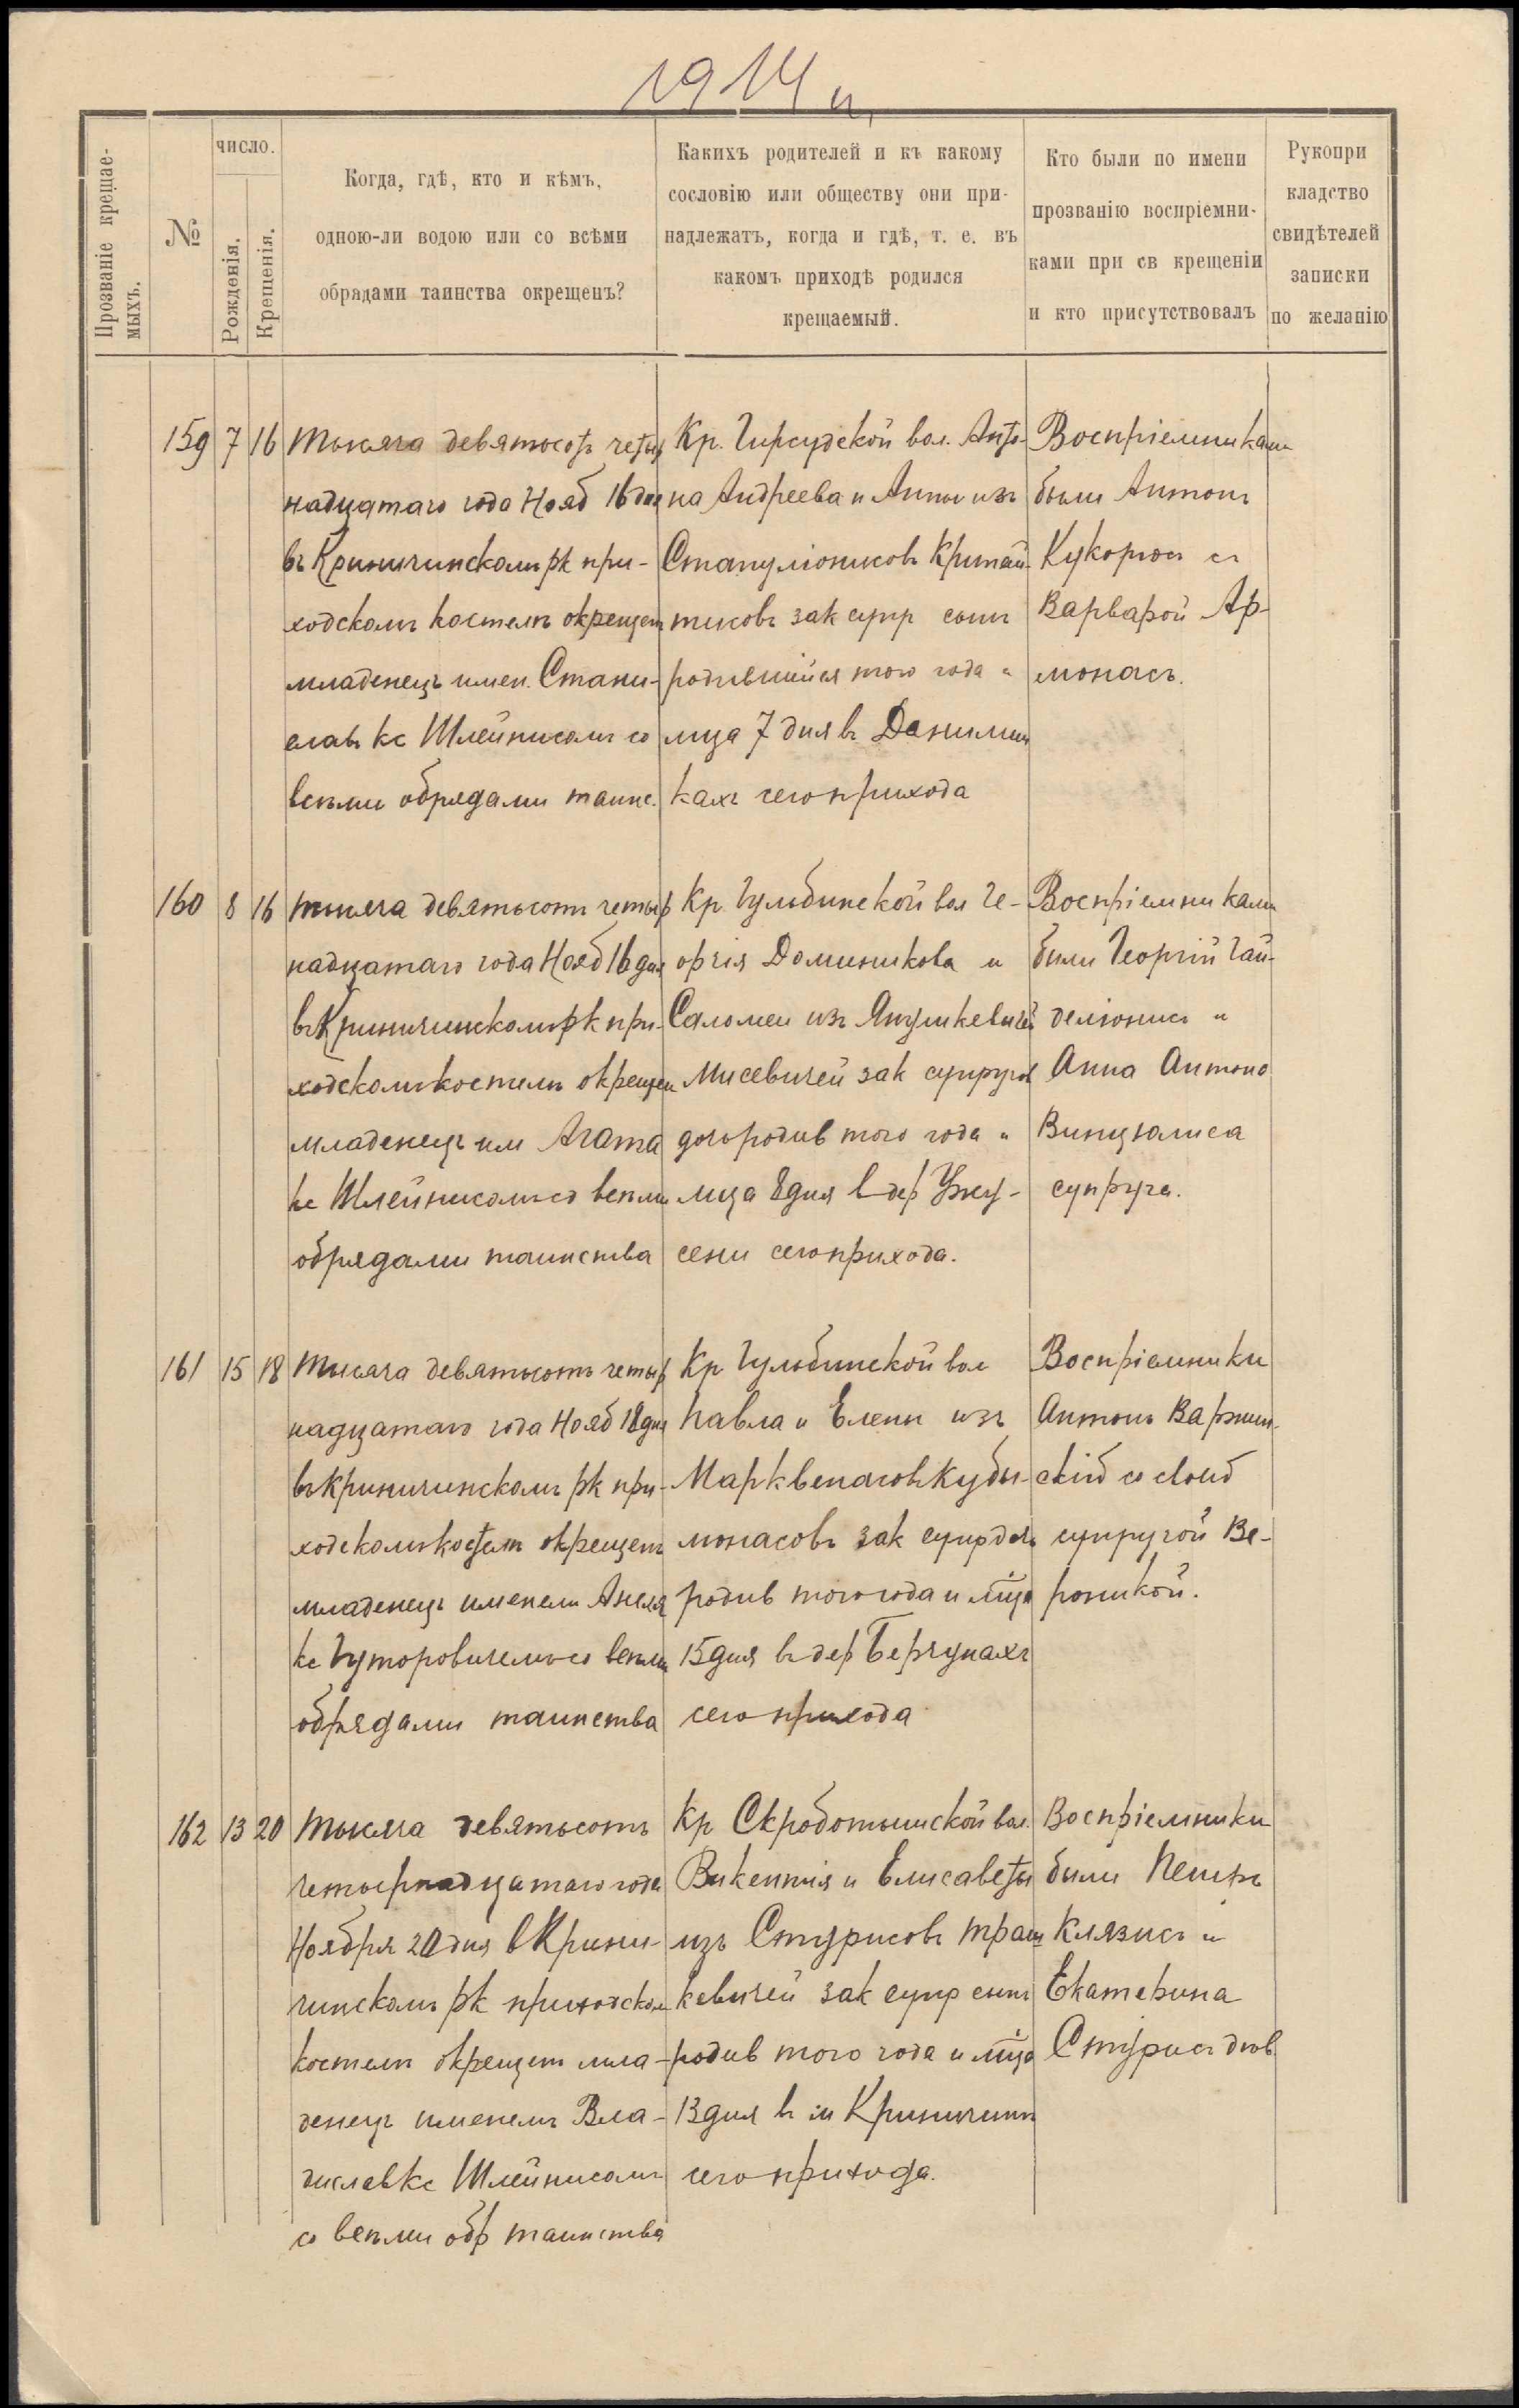 1914 г.
Прозваніе крещае-
мыхъ.
№
число.
Рожденія.
Крещенія.
Когда, гдѣ, кто и кѣмъ,
одною-ли водою или со всѣми
обрядами таинства окрещенъ?
Какихъ родителей и къ какому
сословію или обществу они при-
надлежатъ, когда и гдѣ, т. е. въ
какомъ приходѣ родился
крещаемый.
Кто были по имени
прозванію воспріемни-
ками при св крещеніи
и кто присутствовалъ
Рукопри
кладство
свидѣтелей
записки
по желанію
159 7 16
Тысяча девятьсотъ четыр
надцатаго года Нояб 16 дня
въ Криничинскомъ рк при-
ходскомъ костелѣ окрещенъ
младенецъ имен. Стани-
славъ кс Шлейнисомъ со
всѣми обрядами таинс.
Кр. Гирсудской вол. Анто-
на Андреева и Анны изъ
Стапулionисовъ Критай-
тисовъ зак супр сынъ
родившійся того года и
мца 7 дня въ Данилиш
кахъ сего прихода
Воспріемниками
были Антонъ
Кукорюсъ съ
Варварой Ар-
монасъ.
160 8 16
Тысяча девятьсотъ четыр
надцатаго года Нояб 16 дня
въ Криничинскомъ рк при-
ходскомъ костелѣ окрещен
младенецъ им Агата
кс Шлейнисомъ со всѣми
обрядами таинства
Кр. Гульбинской вол Ге-
оргія Доминикова и
Саломеи изъ Янушкевичей
Мисевичей зак супругов
дочь родив того года и
мца 8 дня въ дер Ужу-
сени сего прихода.
Воспріемниками
были Георгій Гай-
делionисъ и
Анна Антона
Винцюлиса
супруга.
161 15 18
Тысяча девятьсотъ четыр
надцатаго года Нояб 18 дня
въ Криничинскомъ рк при-
ходскомъ костелѣ окрещенъ
младенецъ именемъ Анеля
кс Гуторовичемъ со всѣми
обрядами таинства
Кр. Гульбинской вол
Павла и Елены изъ
Марквенасовъ Кубы-
монасовъ зак супр дочь
родив того года и мца
15 дня въ дер Бергунахъ
сего прихода
Воспріемники
Антонъ Варжин-
скій со своей
супругой Ве-
роникой.
162 13 20
Тысяча девятьсотъ
четырнадцатаго года
Ноября 20 дня въ Крини-
чинскомъ рк приходском
костелѣ окрещенъ мла-
денецъ именемъ Вла-
диславъ кс Шлейнисомъ
со всѣми обр таинства
Кр Скроботышской вол.
Викентія и Елисаветы
изъ Стурисовъ Траш
кевичей зак супр сынъ
родив того года и мца
13 дня въ м Криничинѣ
сего прихода.
Воспріемники
были Петръ
Клязисъ и
Екатерина
Стурисъ дѣв.